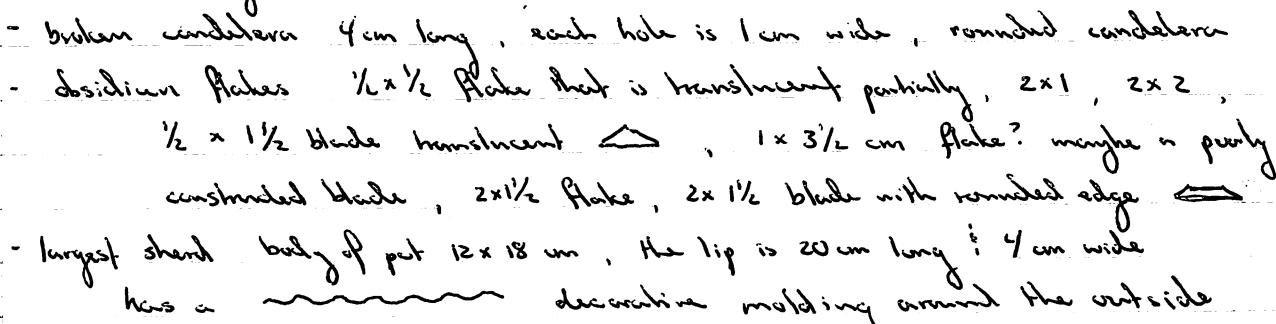 - broken candelera 4 cm long, each hole is 1 cm wide, rounded candelera
- obsidian flakes ½ x ½ flake that is translucent partially, 2x1, 2x2,
½ x 1½ blade translucent , 1 x 3½ cm flake? maybe a poorly
constructed blade, 2x1½ flake, 2x 1½ blade with rounded edge
- largest sherd body of pot 12 x 18 cm, the lip is 20 cm long & 4 cm wide
has a decorative molding around the outside